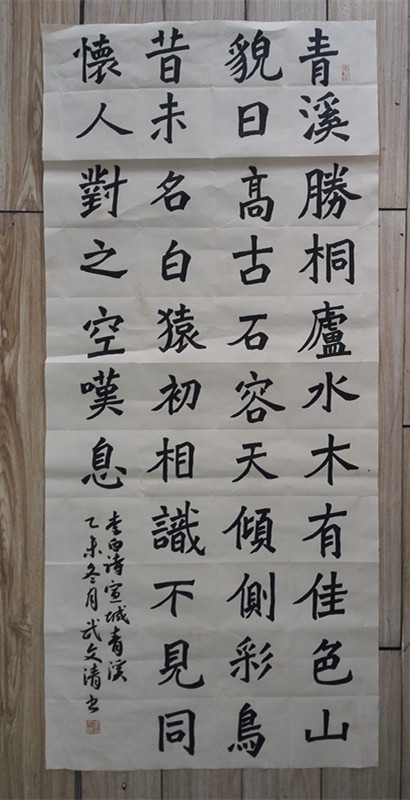 青溪勝桐廬水木有佳色山
貌日高古石容天傾側彩鳥
昔未名白猿初相識不見同
懷人對之空嘆息
李白诗宣城青溪
乙未冬月武文清书